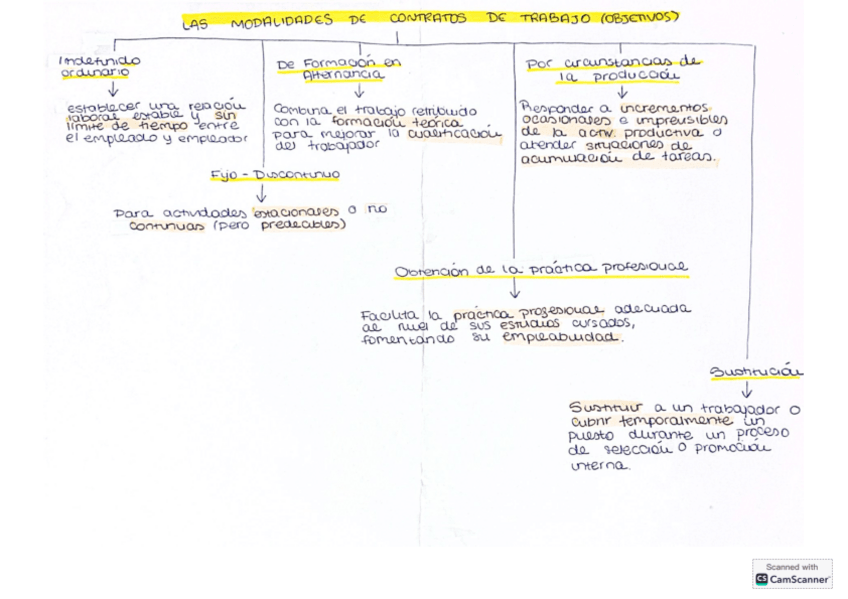 LAS MODALIDADES DE CONTRATOS DE TRABAJO (OBJETIVOS)
Indefinido
ordinario
establecer una relación
laboral estable y sin
límite de tiempo entre
el empleado y empleador
De Formación en
Alternancia
Combina el trabajo retribuido
con la formación teórica
para mejorar la cualificación
del trabajador
Por circunstancias de
la producción
Responder a incrementos
ocasionales e imprevisibles
de la activ. productiva o
atender situaciones de
acumulación de tareas.
Fijo - Discontinuo
Para actividades estacionales o no
continuas (pero predecibles)
Obtención de la práctica profesional
Facilita la práctica profesional adecuada
al nivel de sus estudios cursados,
fomentando su empleabilidad.
Sustitución
Sustituir a un trabajador o
cubrir temporalmente un
puesto durante un proceso
de selección o promoción
interna.
Scanned with
CS CamScanner